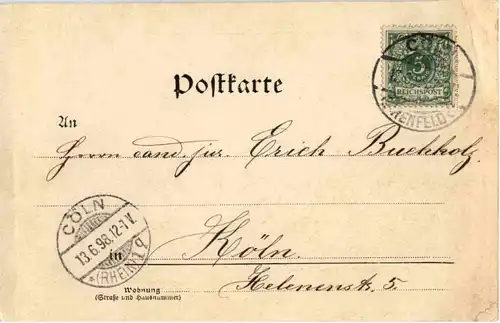 CÖLN
5
REICHSPOST
EHRENFELD
Postkarte
An
Herrn cand. jur. Erich Buchholz
CÖLN
13.6.98.12-1V.
*(RHEIN)1 q
in Köln.
Helenenstr. 5.
Wohnung
(Straße und Hausnummer)